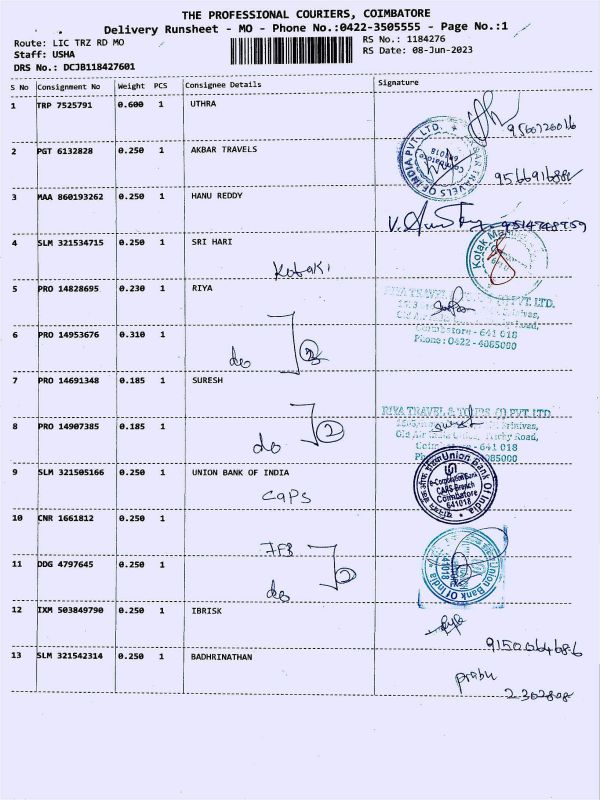 THE PROFESSIONAL COURIERS, COIMBATORE
Delivery Runsheet - MO - Phone No.:0422-3505555 - Page No.:1
Route: LIC TRZ RD MO RS No.: 1184276
Staff: USHA RS Date: 08-Jun-2023
DRS No.: DCJB118427601
S No Consignment No Weight PCS Consignee Details Signature
1 TRP 7525791 0.600 1 UTHRA
2 PGT 6132828 0.250 1 AKBAR TRAVELS
3 MAA 860193262 0.250 1 HANU REDDY
4 SLM 321534715 0.250 1 SRI HARI
5 PRO 14828695 0.230 1 RIYA
Phone : 0422 - 4085000
6 PRO 14953676 0.310 1
do
7 PRO 14691348 0.185 1 SURESH
8 PRO 14907385 0.185 1
RIYA TRAVEL & TOURS (I) PVT. LTD.
do 2
9 SLM 321505166 0.250 1 UNION BANK OF INDIA
Union Bank Of India
e-Corporation Bank
CAPS-Branch
Coimbatore
641018
CAPS
10 CNR 1661812 0.250 1
11 DDG 4797645 0.250 1
Union Bank Of India
641018
do
12 IXM 503849790 0.250 1 IBRISK
13 SLM 321542314 0.250 1 BADHRINATHAN
prabu
2302808